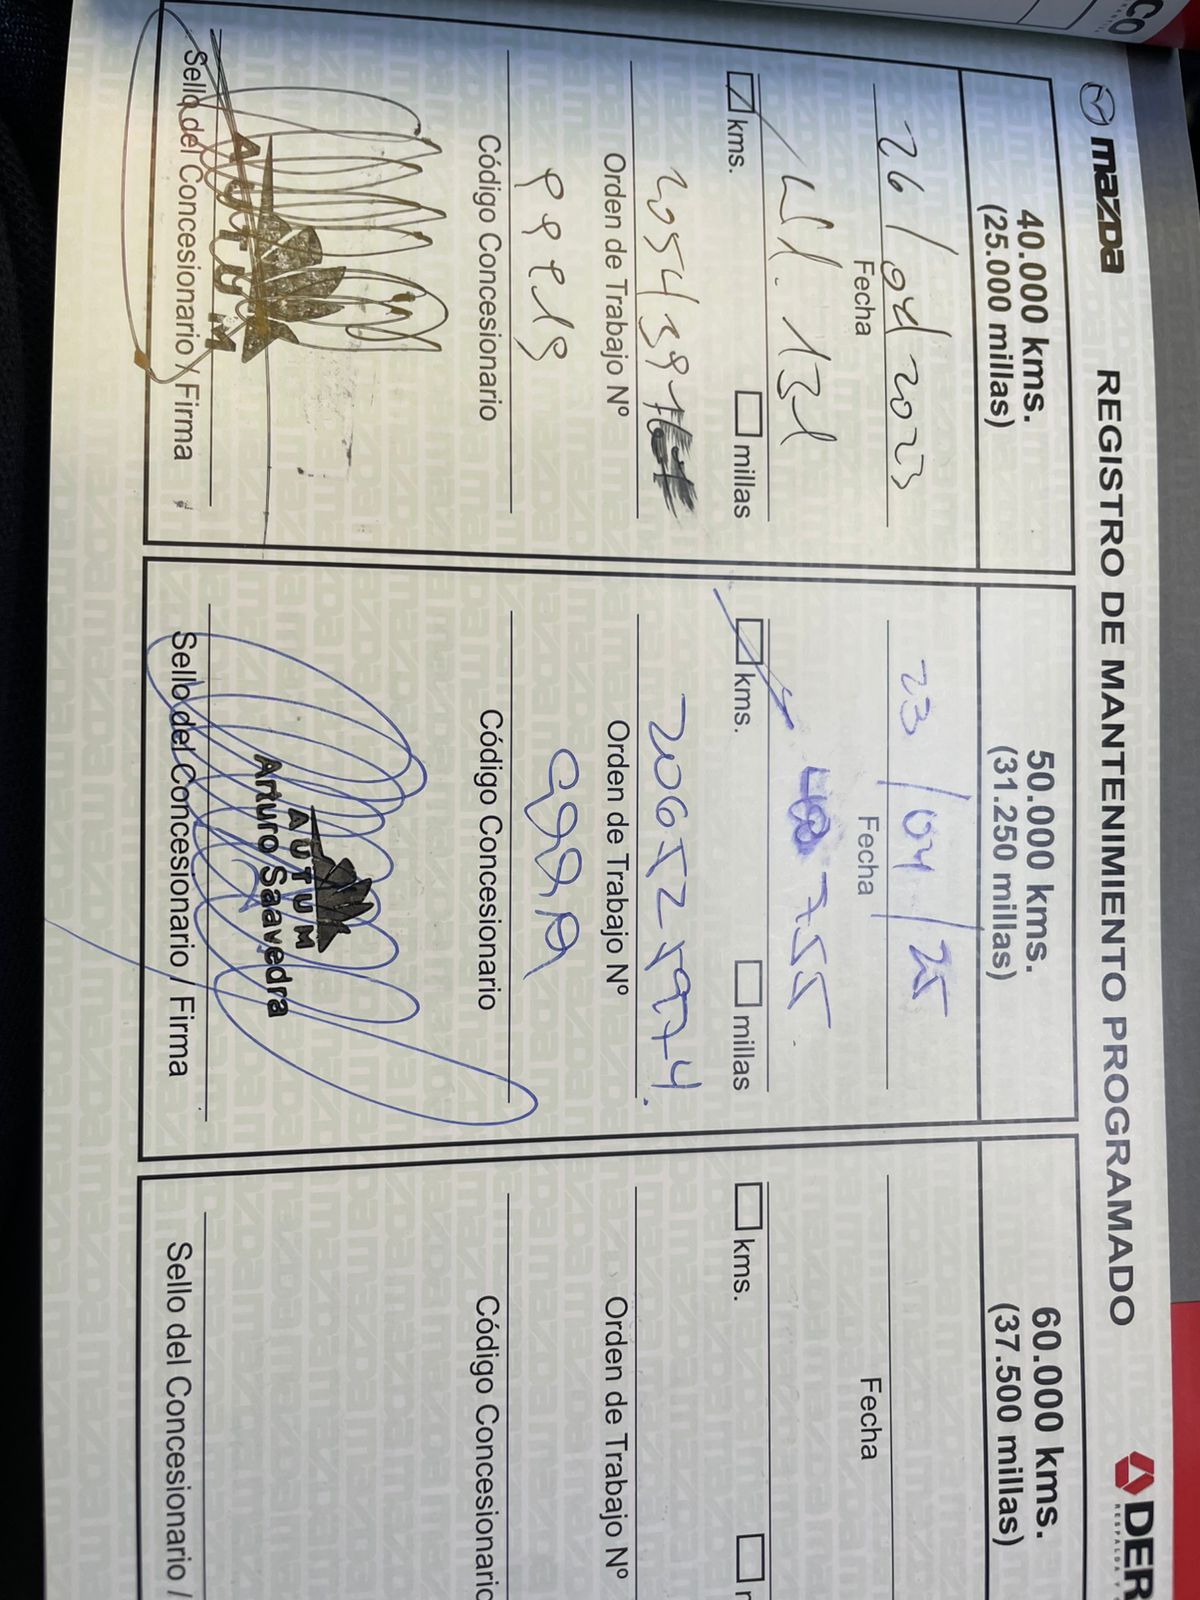 mazda REGISTRO DE MANTENIMIENTO PROGRAMADO DER
RESPALDA Y
40.000 kms.
(25.000 millas)
Fecha
kms. millas
Orden de Trabajo Nº
Código Concesionario
AUTUM
Sello del Concesionario / Firma
50.000 kms.
(31.250 millas)
23/04/25
Fecha
755
kms. millas
2065259974.
Orden de Trabajo Nº
Código Concesionario
AUTUM
Arturo Saavedra
Sello del Concesionario / Firma
60.000 kms.
(37.500 millas)
Fecha
kms.
Orden de Trabajo Nº
Código Concesionario
Sello del Concesionario /
CO